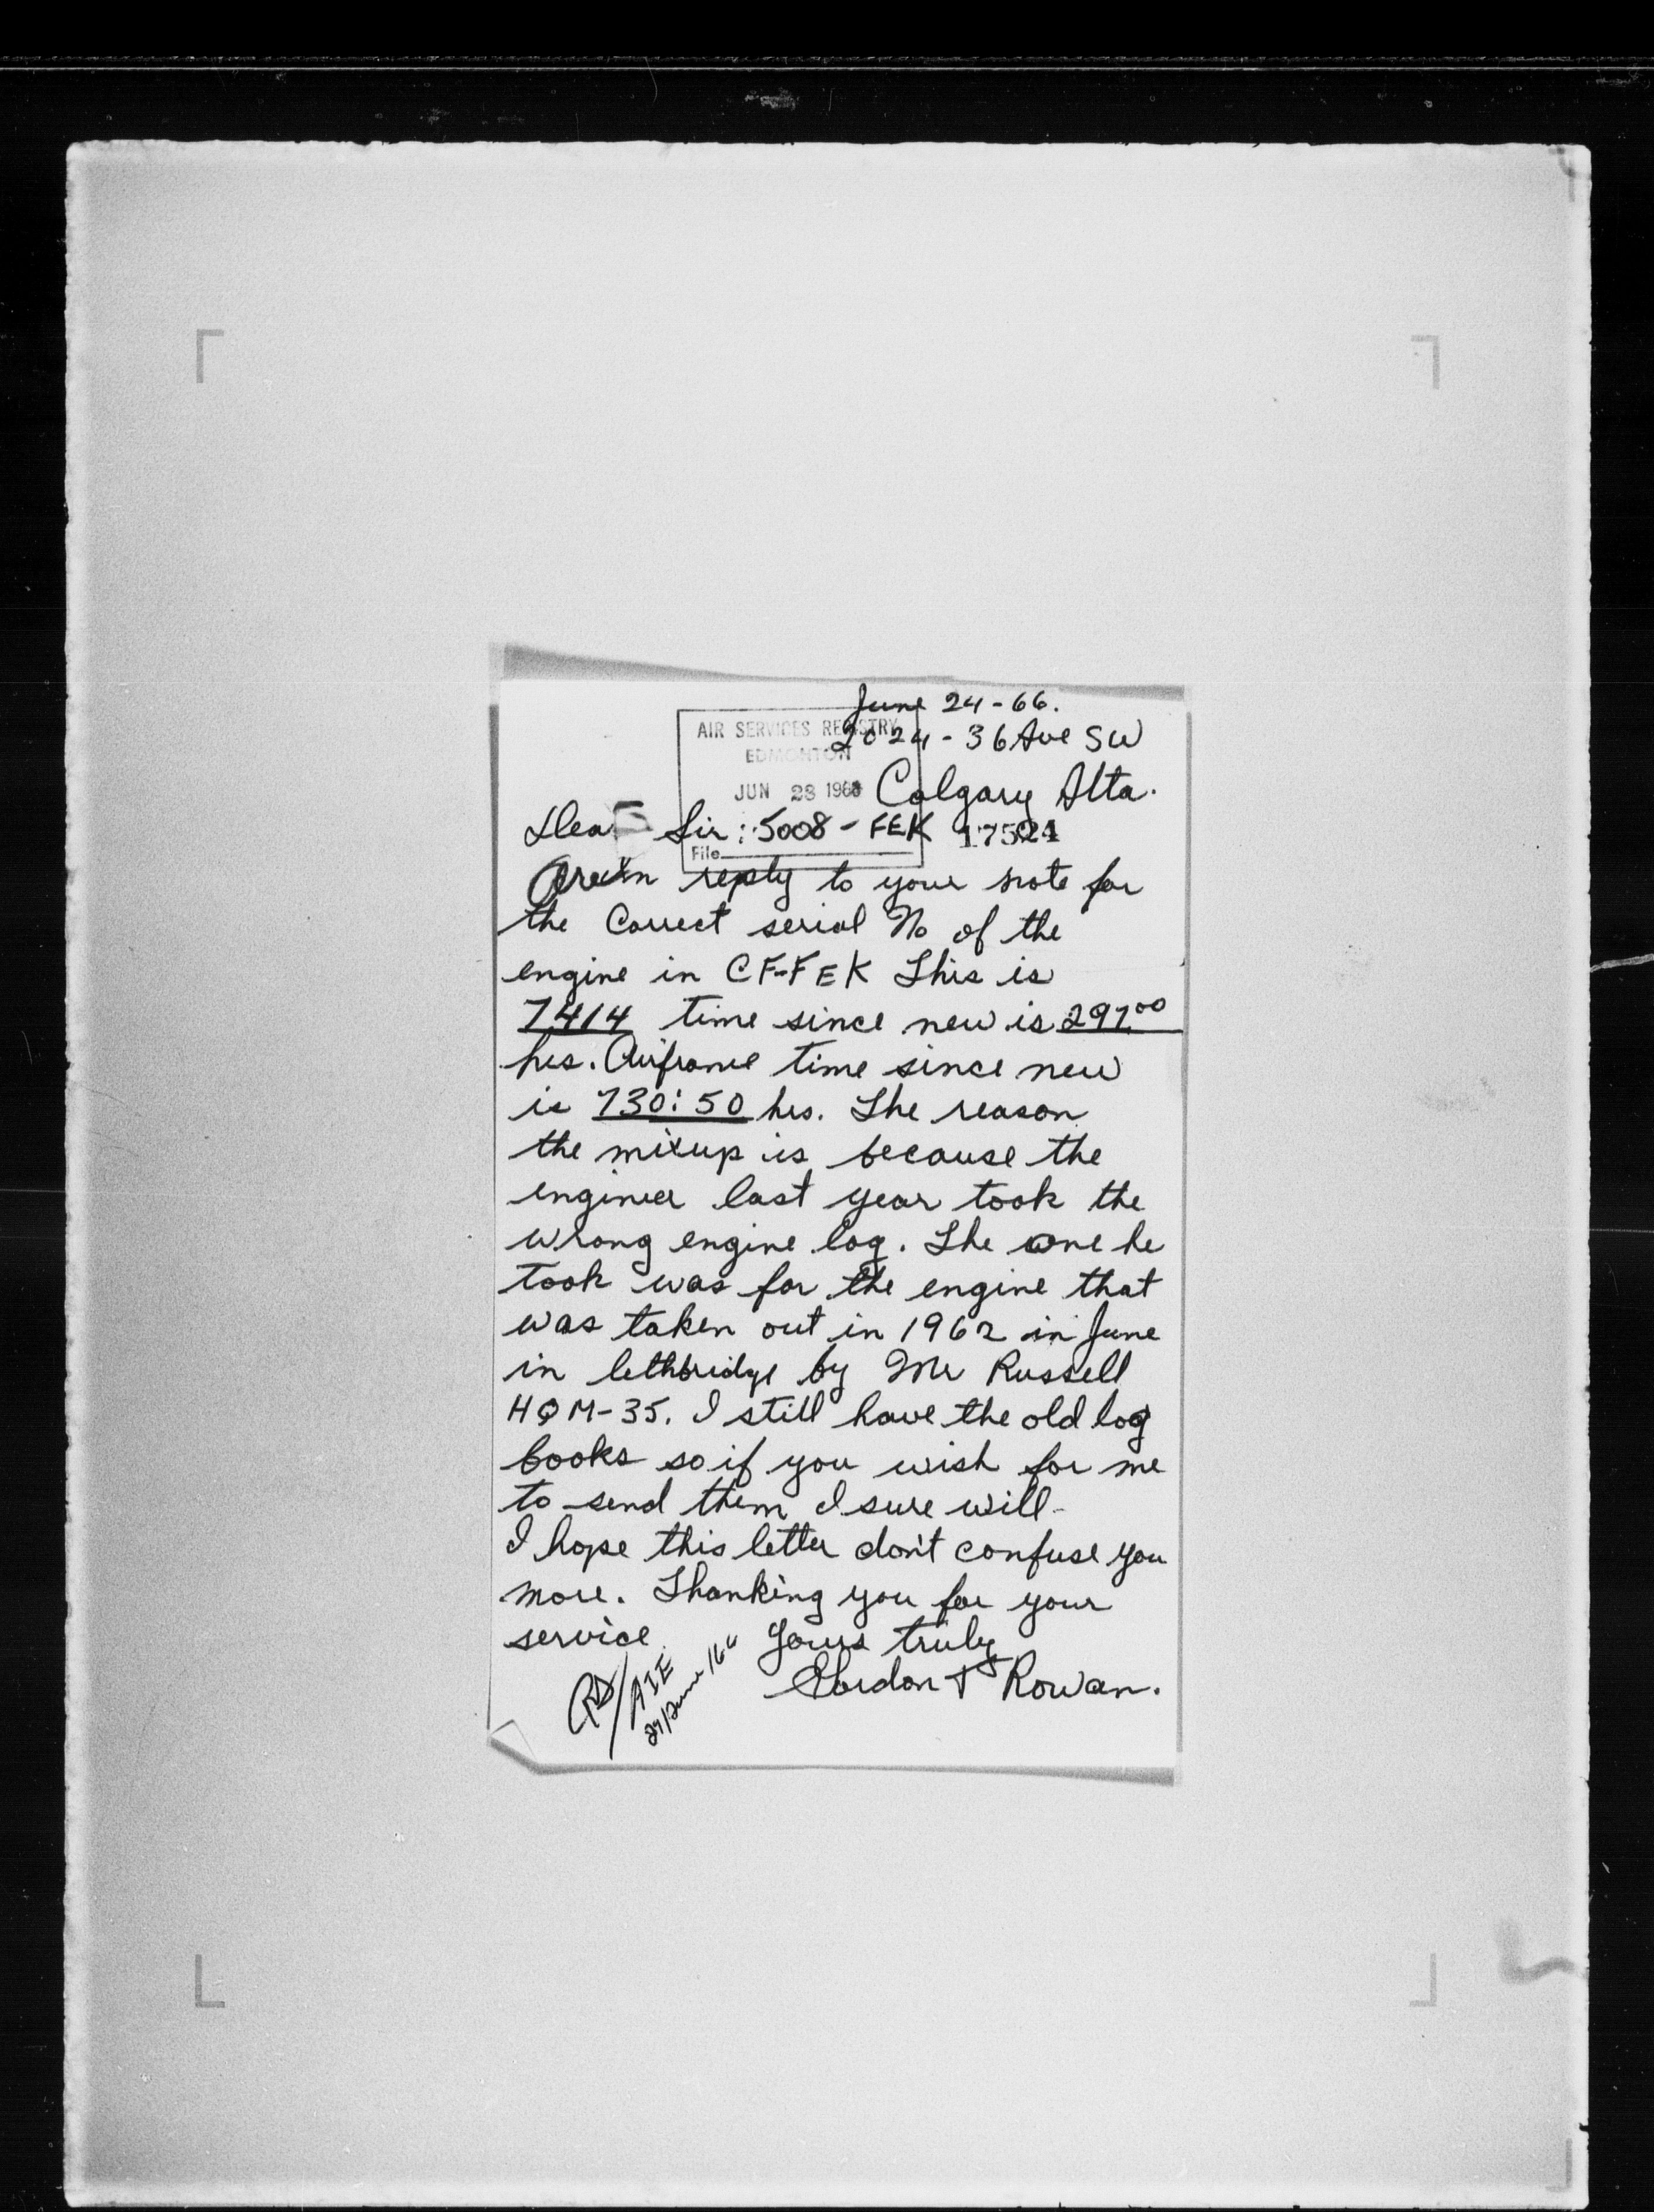 June 24-66.
AIR SERVICES REGISTRY
2024-36 Ave SW
EDMONTON
JUN 28 1966
Calgary Alta.
Dear Sir: 5008-FEK 17521
File
In reply to your note for
the Correct serial No of the
engine in CF-FEK This is
7414 time since new is 297.00
hrs. Airframe time since new
is 730:50 hrs. The reason
the mixup is because the
engineer last year took the
wrong engine log. The one he
took was for the engine that
was taken out in 1962 in June
in lethbridge by Mr Russell
HQM-35. I still have the old log
books so if you wish for me
to send them I sure will-
I hope this letter don't confuse you
more. Thanking you for your
service. Yours truly
Gordon T Rowan.
AIE
29/June